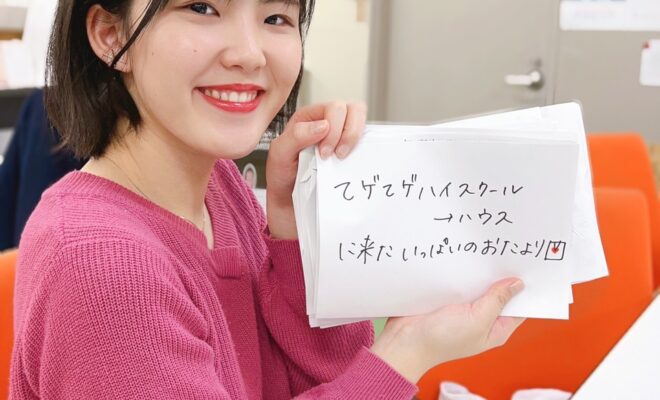 てゲてゲハイスクール
→ハウス
に来たいっぱいのおたより